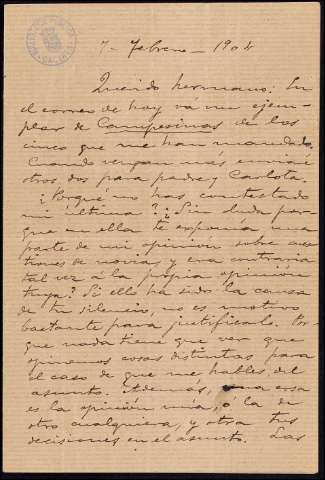 7 - Febrero - 1904
Querido hermano: En
el correo de hoy va un ejem-
plar de Campesinas de los
cinco que me han mandado.
Cuando vengan más enviaré
otros dos para padre y Carlota.
¿Porqué no has contestado
mi última? ¿Sin duda por-
que en ella te exponía una
parte de mi opinión sobre cues-
tiones de novias y era contraria
tal vez á la propia opinión
tuya? Si ello ha sido la causa
de tu silencio, no es motivo
bastante para justificarlo. Por-
que nada tiene que ver que
opinemos cosas distintas para
el caso de que me hables del
asunto. Además, una cosa
es la opinión mía, ó la de
otro cualquiera, y otra tus
decisiones en el asunto. Las